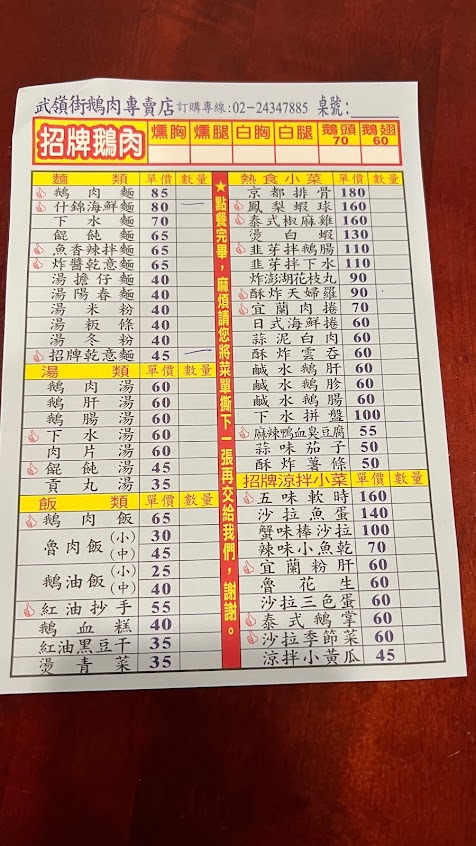 武嶺街鵝肉專賣店 訂購專線:02-24347885 桌號:
招牌鵝肉 燻胸 燻腿 白胸 白腿 鵝頭 70 鵝翅 60
麵類 單價 數量
鵝肉麵 85
什錦海鮮麵 80
下水麵 70
餛飩麵 65
魚香辣拌麵 65
炸醬乾意麵 65
湯擔仔麵 40
湯陽春麵 40
湯米粉 40
湯粄條 40
湯冬粉 40
招牌乾意麵 45
湯類 單價 數量
鵝肉湯 60
鵝肝湯 60
鵝腸湯 60
下水湯 60
肉片湯 60
餛飩湯 45
貢丸湯 35
飯類 單價 數量
鵝肉飯 65
魯肉飯 (小) 30
(中) 45
鵝油飯 (小) 25
(中) 40
紅油抄手 55
鵝血糕 40
紅油黑豆干 35
燙青菜 35
★點餐完畢，麻煩請您將菜單撕下一張再交給我們，謝謝。
熱食小菜 單價 數量
京都排骨 180
鳳梨蝦球 160
泰式椒麻雞 160
燙白蝦 130
韭芽拌鵝腸 110
韭芽拌下水 110
炸澎湖花枝丸 90
酥炸天婦羅 90
宜蘭肉捲 70
日式海鮮捲 60
蒜泥白肉 60
酥炸雲吞 60
鹹水鵝肝 60
鹹水鵝胗 60
鹹水鵝腸 60
下水拼盤 100
麻辣鴨血臭豆腐 55
蒜味茄子 50
酥炸薯條 50
招牌涼拌小菜 單價 數量
五味軟時 160
沙拉魚蛋 140
蟹味棒沙拉 100
辣味小魚乾 70
宜蘭粉肝 60
魯花生 60
沙拉三色蛋 60
泰式鵝掌 60
沙拉季節菜 60
涼拌小黃瓜 45